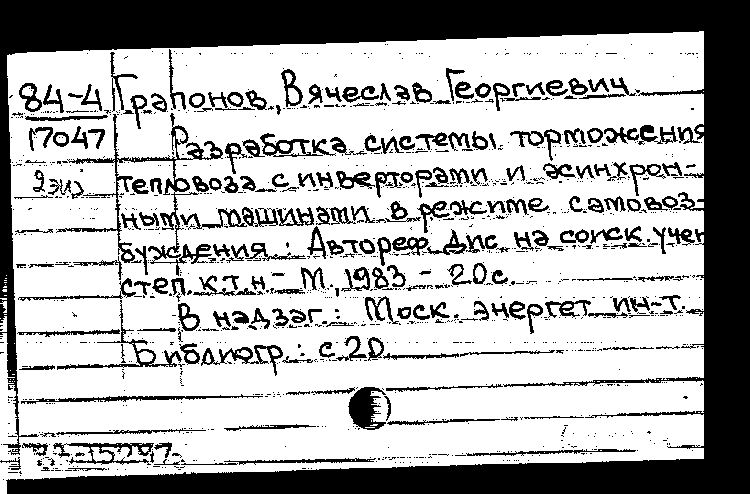 84-4 Грапонов, Вячеслав Георгиевич.
17047 Разработка системы торможения
2 экз тепловоза с инверторами и асинхрон-
ными машинами в режиме самовоз-
буждения: Автореф. дис. на соиск. учен
степ. к.т.н. - М., 1983 - 20с.
В надзаг.: Моск. энергет. ин-т.
Библиогр.: с. 20.
83-15297